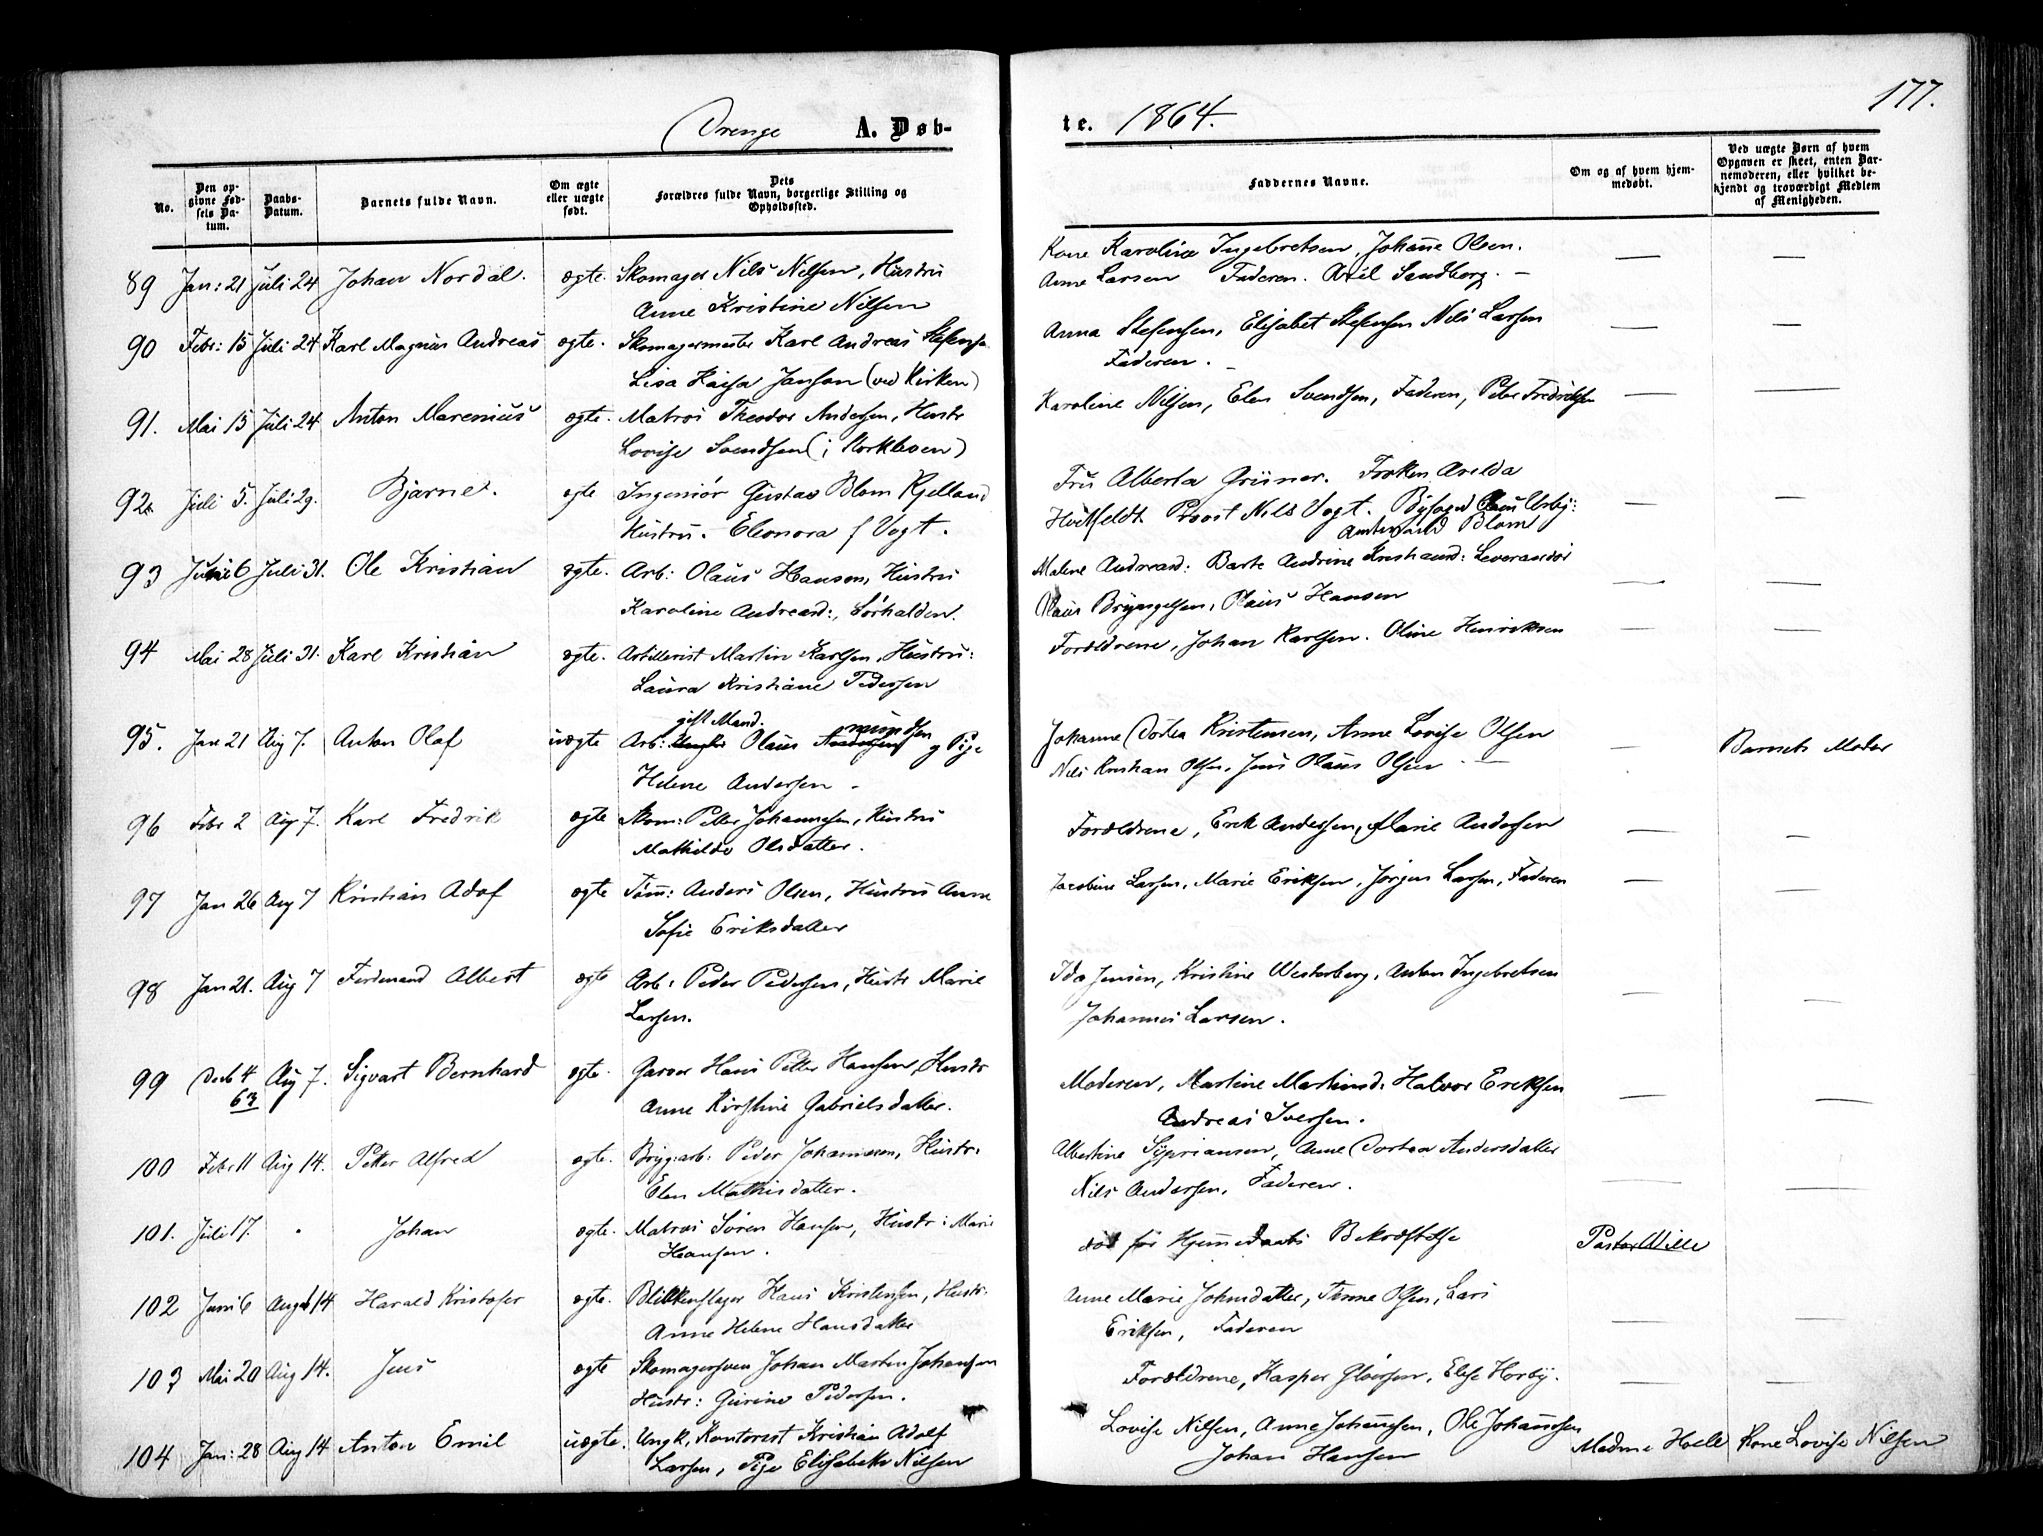 177.
Drenge A. Døb-
te. 1864.
No.
Den op-
givne Fød-
sels Da-
tum.
Daabs-
Datum.
Barnets fulde Navn.
Om ægte
eller uægte
født.
Dets
Forældres fulde Navn, borgerlige Stilling og
Opholdssted.
Faddernes Navne.
Om og af hvem hjem-
medøbt.
Ved uægte Børn af hvem
Opgaven er skeet, enten Bar-
nemoderen, eller hvilket be-
kjendt og troværdigt Medlem
af Menigheden.
89 Jan: 21 Juli 24 Johan Nordal. ægte. Skomager Nils Nilsen, Hustru
Anne Kristine Nilsen
Kone Karolina Ingebretsen, Johanne Olsen.
Anne Larsen Faderen. Axel Sandberg. — — —
90 Febr: 15 Juli 24 Karl Magnus Andreas ægte. Skomagermester Karl Andreas
Lisa Kaisa Janson (ved Kirken)
Anna Stefensen, Elisabet Stefensen Nils Larsen
Faderen. — — —
91. Mai 15 Juli 24 Anton Marenius ægte. Matros Theodor Andersen, Hustr
Lovise Svendsen (i
Karoline Nilsen, Elen Svendsen, Faderen, Peter Fredriksen — —
92. Juli 5. Juli 29. Bjarne. ægte Ingeniør Gustav Blom Kjelland
Hustru. Eleonora f Vogt.
Fru Alberta Grüner. Frøken Arilda
Huitfeldt Provst Nils Vogt. Byfoged
Blom — —
93 Juni 6 Juli 31. Ole Kristian ægte. Arb: Olaus Hansen, Hustru
Karoline Andreasd:, Sørhalden.
Malene Andreasd: Barte Andrine Kristiansd: Leverandør
Olaus Bryngelsen, Olaus Hansen — —
94 Mai 28 Juli 31. Karl Kristian ægte. Artillerist Martin Karlsen, Hustru:
Laura Kristiane Pedersen
Forældrene, Johan Karlsen. Oline Henriksen — —
95. Jan 21 Aug 7. Anton Olaf uægte Arb: gift Mand. Olaus g Pige
Helene Andersen -
Johanne Dortea Kristensen, Anne Lovise Olsen
Nils Kristian Olsen, Jens Olaus Olsen — — Barnets Moder
96 Febr 2 Aug 7. Karl Fredrik ægte Skom: Petter Johannesen, Hustru
Mathilde Olsdatter.
Forældrene, Erik Andersen, Marie Andersen — —
97 Jan 26 Aug 7 Kristian Adof ægte Tøm: Anders Olsen, Hustru Anne
Sofie Eriksdatter
Jacobine Larsen, Marie Eriksen, Jørgen Larsen, Faderen — —
98 Jan 21. Aug 7 Ferdinand Albert ægte Arb: Peder Pedersen, Hustr Marie
Larsen.
Ida Jensen, Kristine Westerberg, Anton Ingebretsen
Johannes Larsen. — —
99 Decb 4
63 Aug 7. Sigvart Bernhard ægte. Garver Hans Petter Hansen, Hustr
Anne Kirstine Gabrielsdatter.
Moderen, Martine Martinsd: Halvor Eriksen
Andreas Iversen. — —
100 Febr 11 Aug 14. Petter Alfred ægte. Brygarb: Peder Johannesen, Hustr:
Elen Mathisdatter.
Albertine Sypriansen, Anne Dortea Andersdatter
Nils Andersen, Faderen. — —
101. Juli 17. " Johan ægte. Matros Søren Hansen, Hustr: Marie
Hansen.
død før Hjemmedaabs Bekræftelse Pastor Wille
102 Juni 6 August 14 Harald Kristofer ægte. Blikkenslager Hans Kristensen, Hustr:
Anne Helene Hansdatter
Anne Marie Johnsdatter, Olsen, Lars
Eriksen, Faderen — —
103 Mai 20 Aug 14. Jens ægte Skomagersven Johan Martin Johansen
Hustr: Gurine Pedersen.
Forældrene, Kasper Gloersen, Elise Horby. — —
104 Jan: 28 Aug 14 Anton Emil uægte. Ungk, Kontorist Kristian Adolf
Larsen, Pige Elisabeth Nilsen
Lovise Nilsen, Anne Johannesen, Ole Johannesen
Johan Hansen Madme Hoell Kone Lovise Nilsen